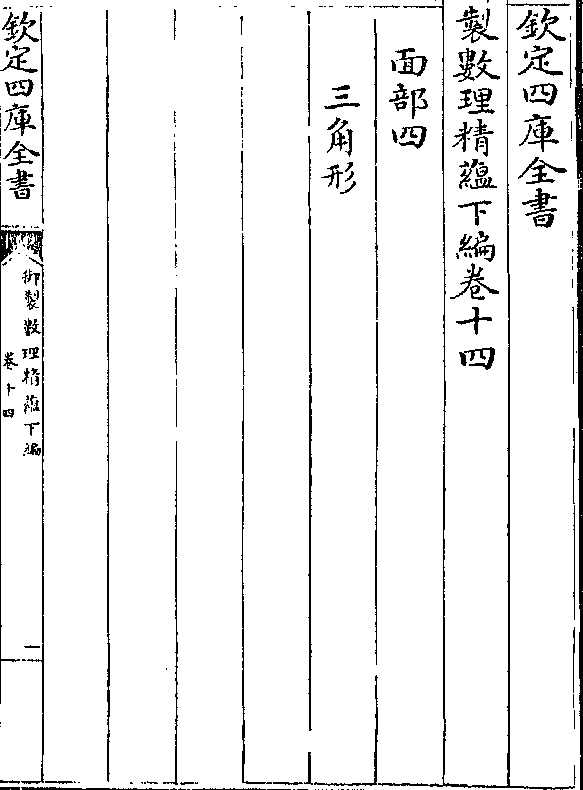 欽定四庫全書
製數理精蘊下編卷十四
面部四
三角形
欽定四庫全書
御製數理精蘊下編
卷十四
一